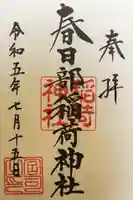 奉拝
春日部稲荷神社
令和五年七月十五日